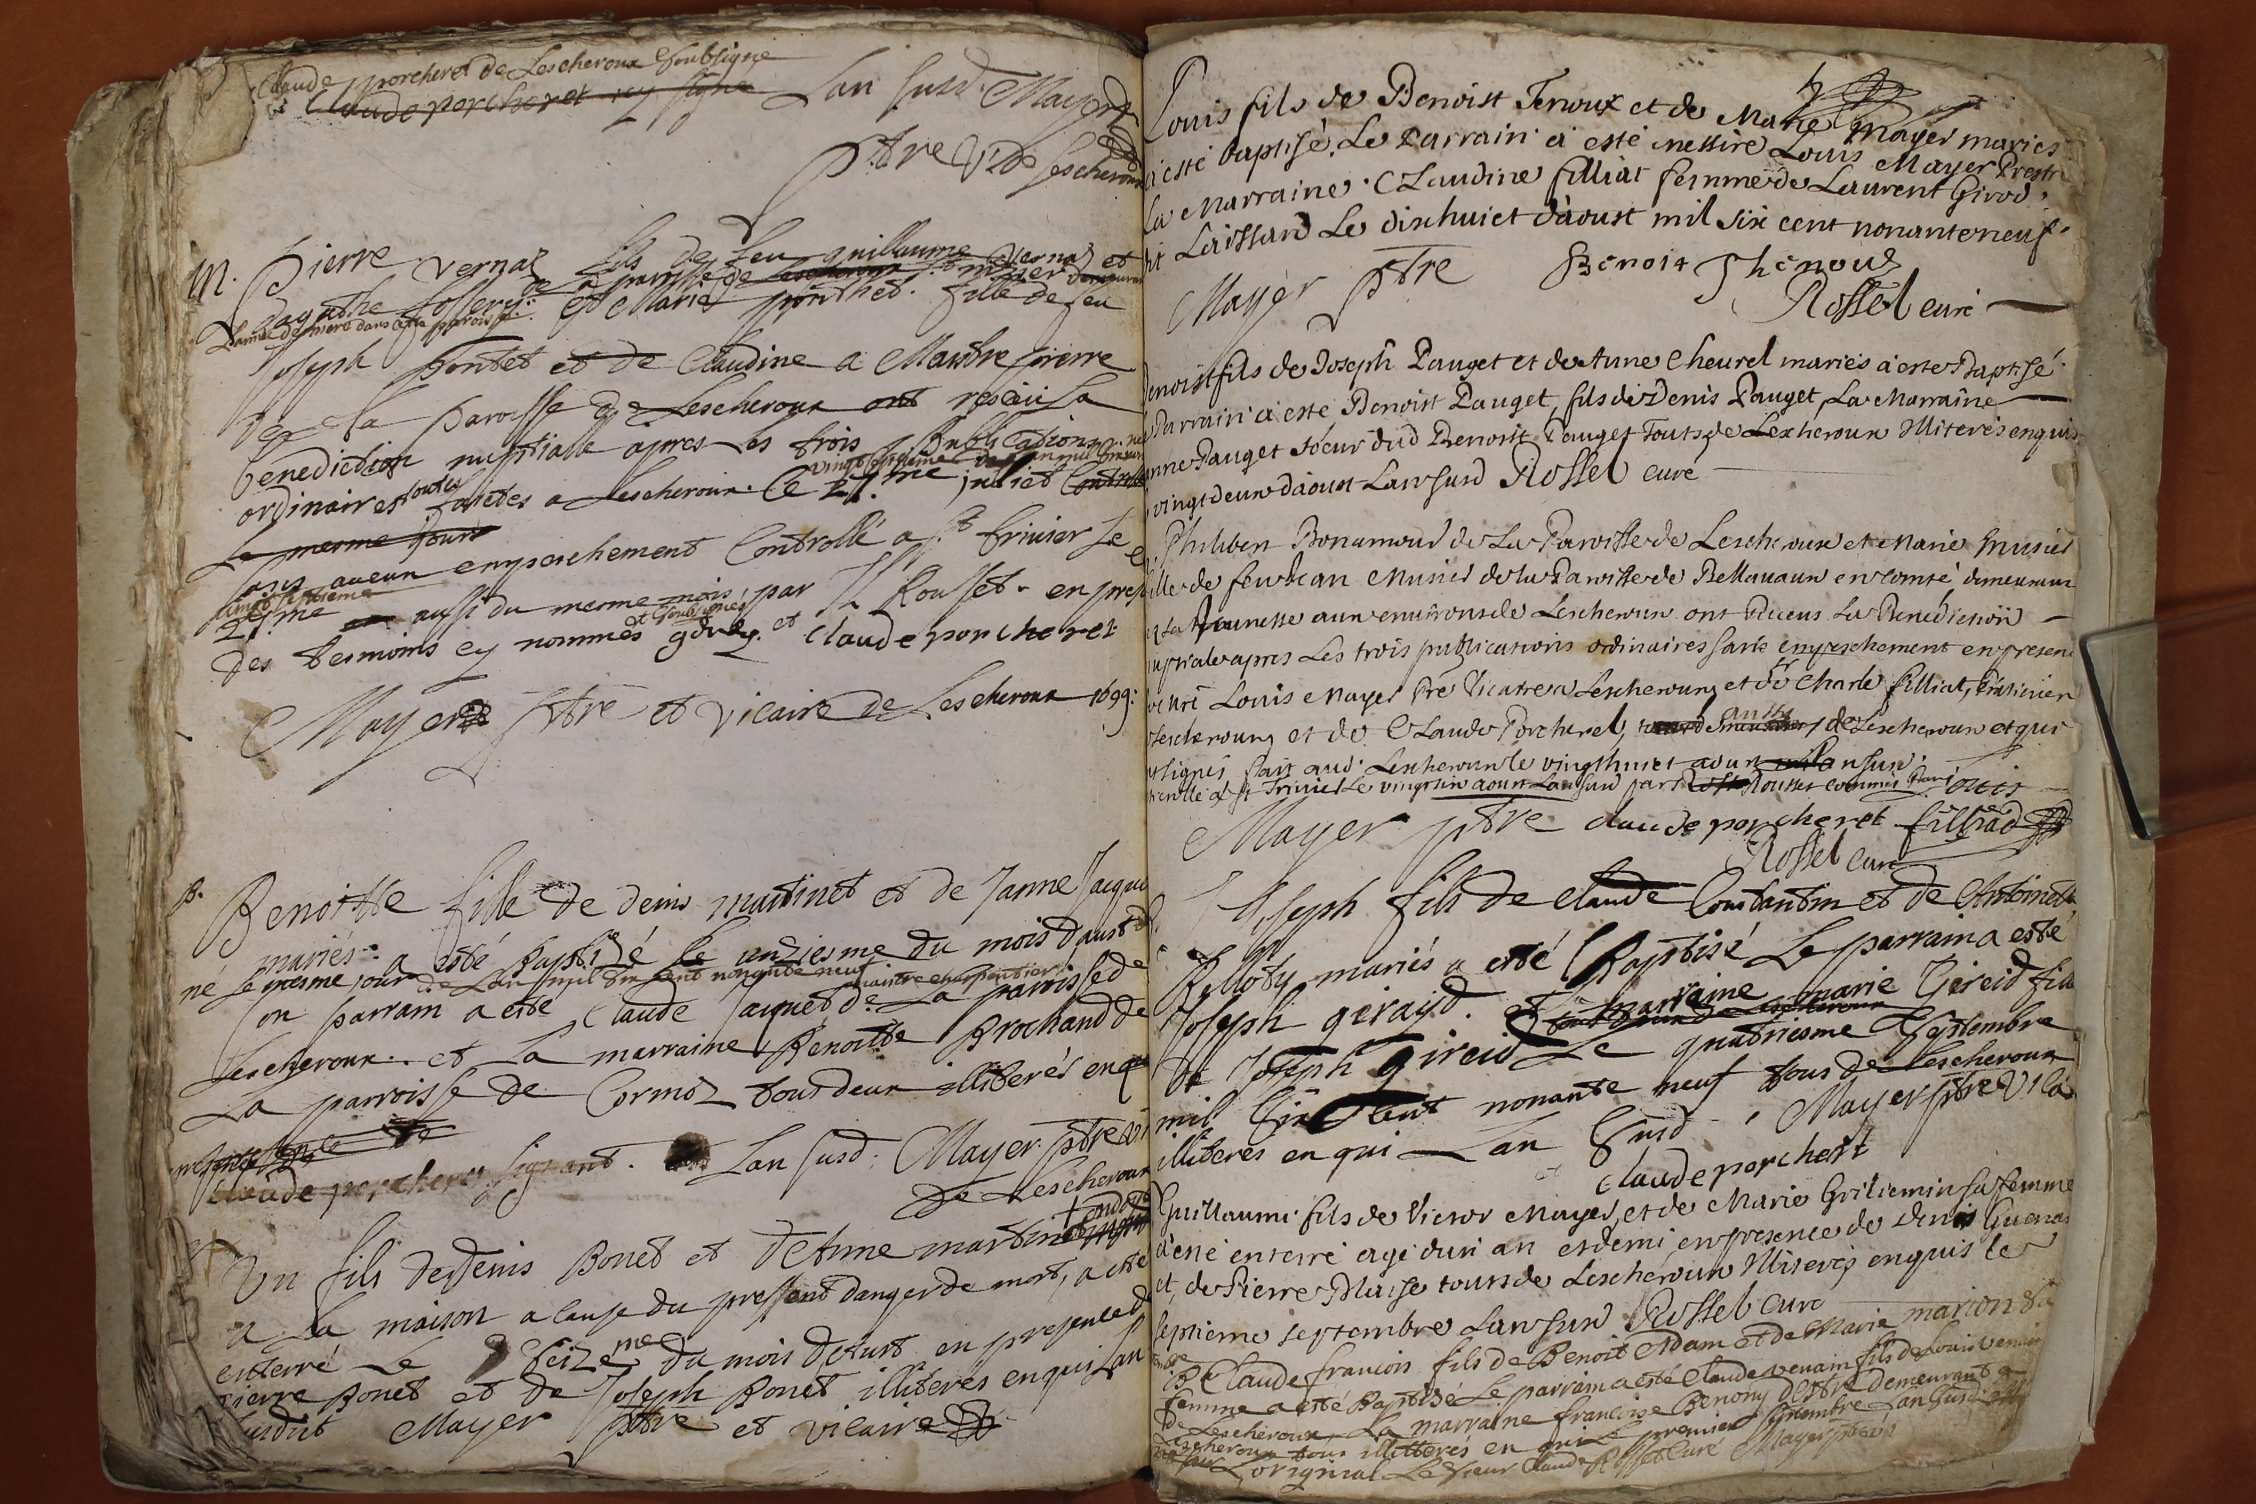 Claude porcheret de Lescheroux soubsigne
Claude porcheret cy signe Lan susd. Mayer
ptre Vic de Lescheroux
M. Pierre Vernaz fils de feu guillaume Vernaz et
de la paroisse de Lescheroux
L'année derniere dans cette paroisse et Marie ponthet. fille de feu
Joseph Pontet et de Claudine a Maistre pierre
de la paroisse de Lescheroux ont resceu la
benediction nuptialle apres les trois Publications
vingt septieme de l'an mil
ordinaires toutes faictes a Lescheroux. Ce 27.me juliet Controllé
Le mesme Jour
sans aucun empeschement Controllé a St. trivier Le
vingt septieme
27.me aussi du mesme mois par Rousset. en pres
et soubsignés
des tesmoins cy nommés et Claude porcheret
Mayer ptre et vicaire de Lescheroux 1699.
B. Benoitte fille de denis martinet et de Janne Jaque
mariés. a esté Baptizé Le unziesme du mois d'aust
né le mesme jour de Lan mil six cent nonante neuf maistre charpentier
son parrain a este Claude Jaquet de La paroisse de
Lescheroux. et La marraine Benoitte Brochand de
La parroisse de Cormoz tous deux illiterés enqui
presence de
Claude porcheret signant. Lan susd. Mayer ptre vi
de Lescheroux
ondoyé
Un fils de denis Bonet et d'Anne martinet
a La maison a cause du pressant danger de mort, a esté
enterré Le seize.me du mois d'Aust en presence de
pierre Bonet et de Joseph Bonet illiterés enqui Lan
susdit Mayer ptre et vicaire
Louis fils de Benoist Tenoux et de Marie Mayer mariés
a esté baptisé. Le Parrain a esté messire Louis Mayer Prestre
La Marraine. Claudine filliat femme de Laurent Girod
Laissard Le dixhuict d'aoust mil six cent nonanteneuf.
Mayer ptre Benoit Thenoud
Rossel curé
Benoist fils de Joseph Pauget et de Anne Cheurel mariés a esté Baptisé.
Parrain a esté Benoist Pauget, fils de Denis Pauget, La Marraine
Anne Pauget soeur dud Benoist Pauget Touts de Lescheroux Illiterés enquis
vingtdeux d'aoust Lan susd Rossel curé
Philibert Bonamoud de La Paroisse de Lescheroux et Marie Musiet
fille de feu Jean Musiet de la Paroisse de Bellavaux en comté demeurant
sa Jeunesse aux environs de Lescheroux ont Receus La Benediction
nuptiale apres Les trois publications ordinaires sans empeschement en presence
Louis Mayer Pre Vicaire a Lescheroux et de Sr Charle filliat, Praticien
Lescheroux et de Claude Porcheret, aussy de Lescheroux et qui
signés fait aud. Lescheroux le vingthuict aoust Lan susd.
Controllé a St Trivier Le vingtsix aoust Lan susd par Rousset commis
Mayer ptre claude porcheret filliad
Rossel Curé
B. Joseph fils de Claude Constantin et de Antoinette
Pelloty mariés a esté Baptisé Le parrain a esté
Joseph gérayd. et La marraine marie Gireid fille
de Joseph gireid Le quatriesme Septembre
mil six Cent nonante neuf tous de Lescheroux
illiteres en qui Lan susd. Mayer ptre vica
et claude porcheret
Guillaume fils de Victor Mayer et de Marie Grillemin sa femme
a esté enterré agé d'un an et demi en presence de denis Guenas
et, de Pierre Blaise touts de Lescheroux Illiterés enquis le
septieme septembre Lan susd Rossel Curé
B Claude francois fils de Benoit Adam et de Marie marion sa
femme a esté Baptisé Le parrain a esté Claude venain fils de Louis venain
de Lescheroux. La marraine francoise Benony demeurant a
Lescheroux tous illiteres en qui Le premier septembre Lan susd.
L'original Le sieur Claude Rossel Curé Mayer ptre